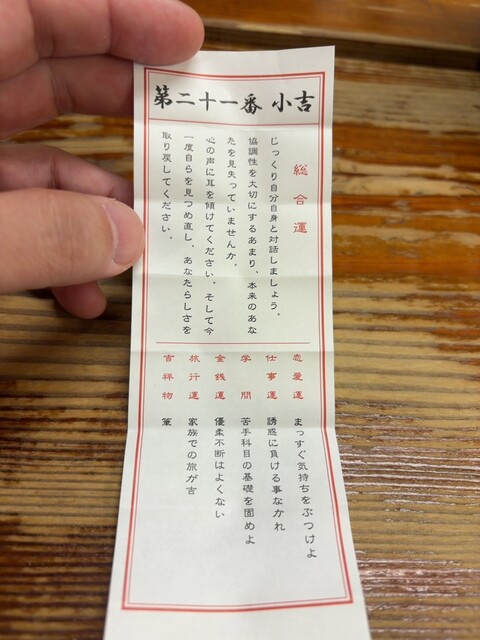 第二十一番 小吉
総合運
じっくり自分自身と対話しましょう。
協調性を大切にするあまり、本来のあな
たを見失っていませんか。
心の声に耳を傾けてください。そして今
一度自らを見つめ直し、あなたらしさを
取り戻してください。
恋愛運 まっすぐ気持ちをぶつけよ
仕事運 誘惑に負ける事なかれ
学問 苦手科目の基礎を固めよ
金銭運 優柔不断はよくない
旅行運 家族での旅が吉
吉祥物 筆